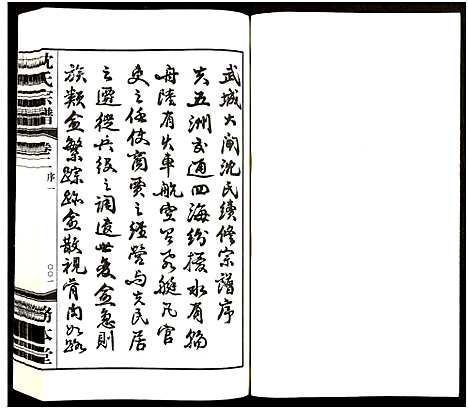 武城大閘沈氏續修宗譜序
夫五洲交通四海紛擾水有輪
舟陸有火車航空有飛艇凡官
吏之任使商賈之經營与夫民居
之遷從兵役之調遣世愈急則
族類愈繁踪跡愈散視骨肉如路
沈氏宗譜
卷一
序一
〇〇一
本堂